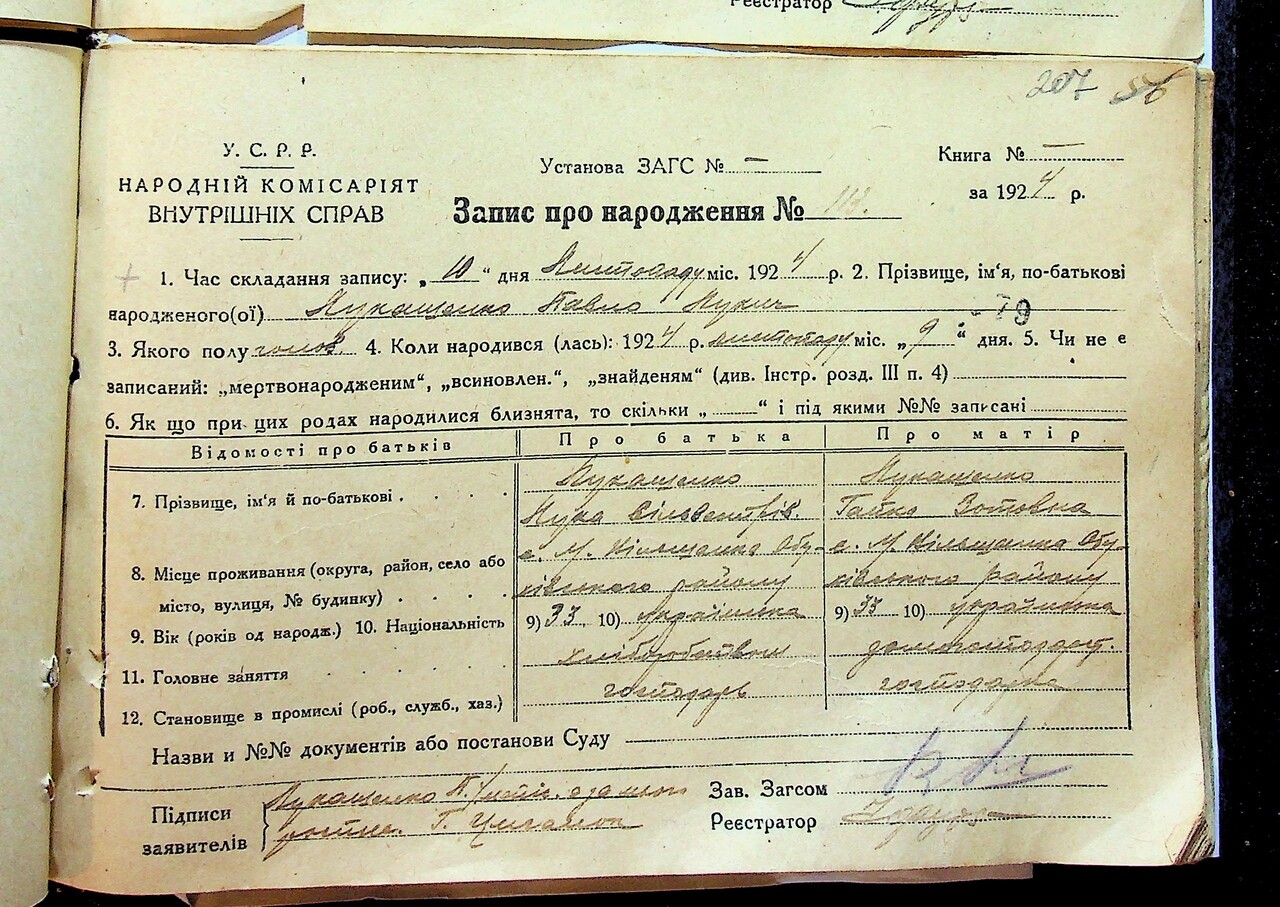 Реєстратор
207 56
У. С. Р. Р.
НАРОДНІЙ КОМІСАРІЯТ
ВНУТРІШНІХ СПРАВ
Установа ЗАГС № —
Книга № —
за 1924 р.
Запис про народження № 113.
1. Час складання запису: „10“ дня Листопаду міс. 1924 р. 2. Прізвище, ім'я, по-батькові
народженого(ої) Лукашенко Павло Лукич
79
3. Якого полу чолов. 4. Коли народився (лась): 1924 р. листопаду міс. „9“ дня. 5. Чи не є
записаний: „мертвонародженим“, „всиновлен.“, „знайденям“ (див. Інстр. розд. III п. 4)
6. Як що при цих родах народилися близнята, то скільки „ “ і під якими №№ записані
Відомості про батьків Про батька Про матір
7. Прізвище, ім'я й по-батькові Лукашенко Лукашенко
Лука Сільвестрів. Гапка Зотовна
8. Місце проживання (округа, район, село або с. М. Вільшанка Обу- с. М. Вільшанка Обу-
місто, вулиця, № будинку) хівського району хівського району
9. Вік (років од народж.) 10. Національність 9) 33 10) українська 9) 33 10) українська
11. Головне заняття хліборобством домогосподарст.
12. Становище в промислі (роб., служб., хаз.) господарь господарка
Назви и №№ документів або постанови Суду
Підписи
заявителів
Лукашенко
Зав. Загсом
Реєстратор